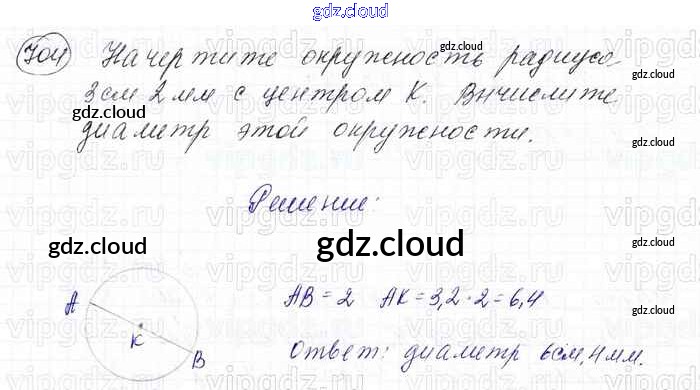 gdz.cloud
704 Начертите окружность радиуса
3см 2мм с центром К. Вычислите
диаметр этой окружности.
gdz.cloud
gdz.cloud
gdz.cloud
vipgdz.ru
Решение:
gdz.cloud
gdz.cloud
gdz.cloud
A
K
B
AB = 2 AK = 3,2 · 2 = 6,4
Ответ: диаметр 6см,4мм.
gdz.cloud
gdz.cloud